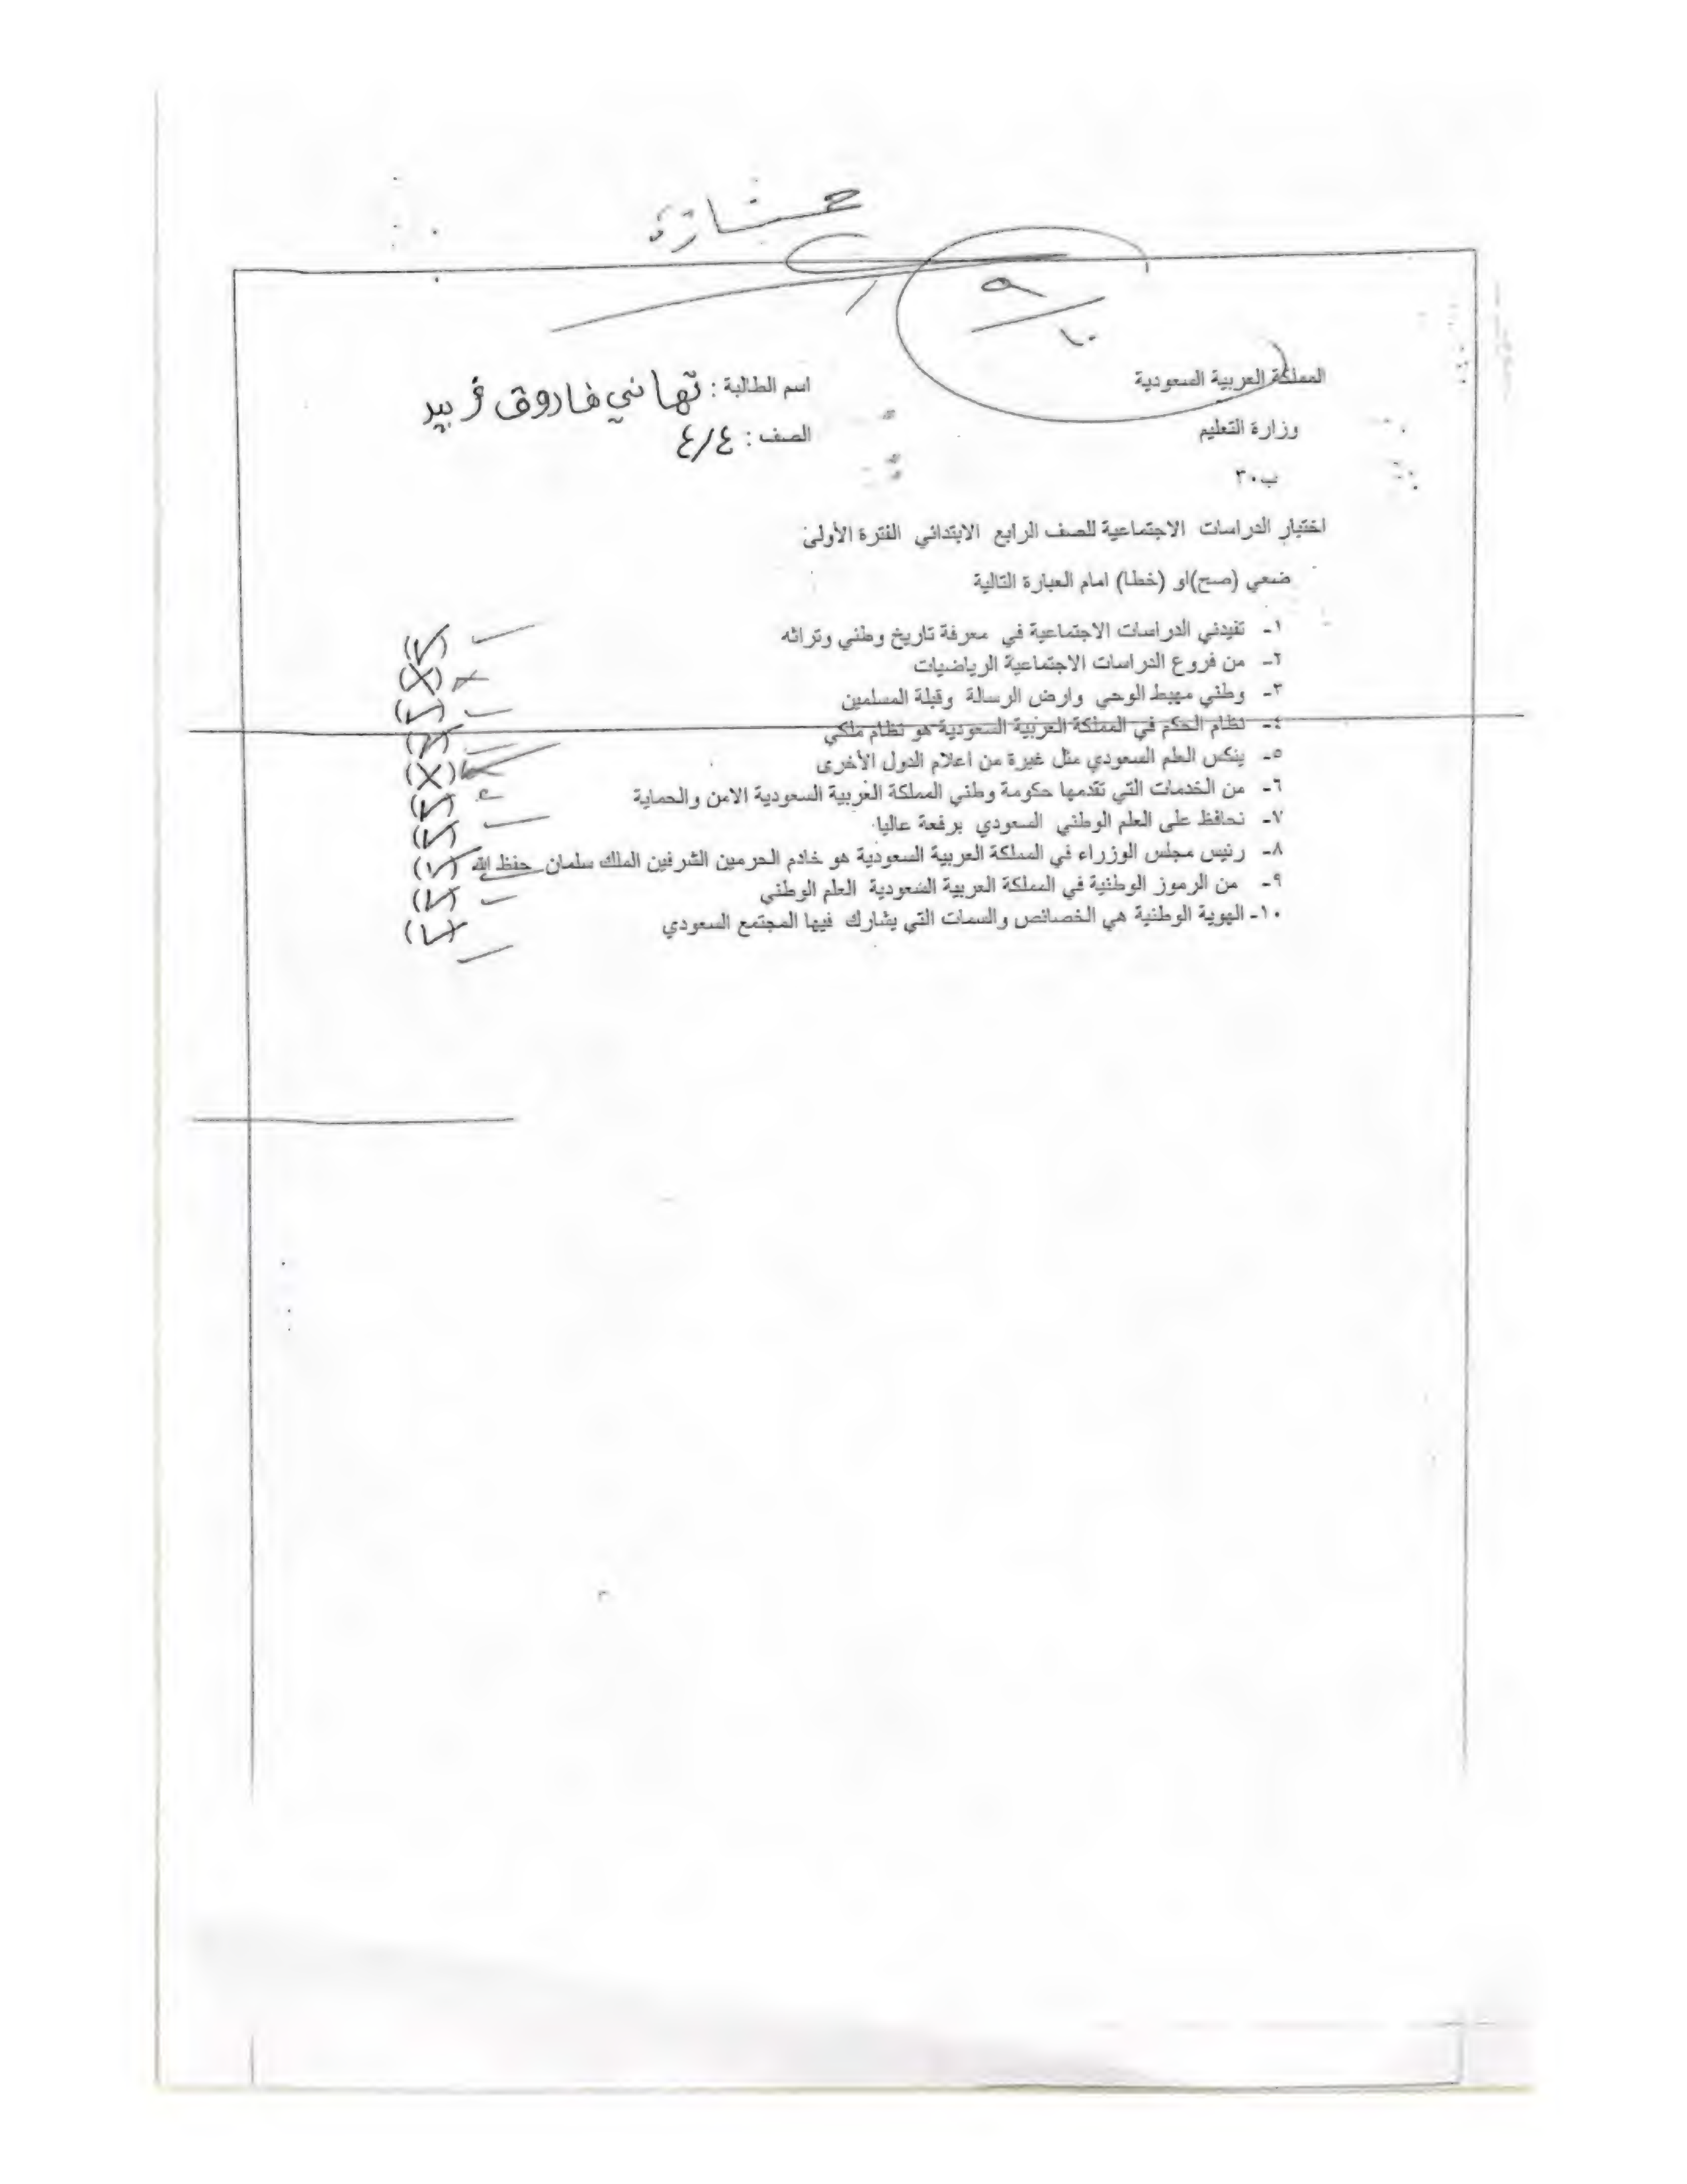 ممتازة
٩
١٠
المملكة العربية السعودية
اسم الطالبة : تهاني فاروق فريد
وزارة التعليم
الصف : ٤/٤
ب٣٠
اختبار الدراسات الاجتماعية للصف الرابع الابتدائي الفترة الأولى
ضعي (صح)او (خطا) امام العبارة التالية
١- تفيدني الدراسات الاجتماعية في معرفة تاريخ وطني وتراثه (✓)
٢- من فروع الدراسات الاجتماعية الرياضيات (X)
٣- وطني مهبط الوحي وارض الرسالة وقبلة المسلمين (✓)
٤- نظام الحكم في المملكة العربية السعودية هو نظام ملكي (✓)
٥- ينكس العلم السعودي مثل غيرة من اعلام الدول الأخرى (X)
٦- من الخدمات التي تقدمها حكومة وطني المملكة العربية السعودية الامن والحماية (✓)
٧- نحافظ على العلم الوطني السعودي برفعة عاليا (✓)
٨- رئيس مجلس الوزراء في المملكة العربية السعودية هو خادم الحرمين الشرفين الملك سلمان حفظ الله (✓)
٩- من الرموز الوطنية في المملكة العربية السعودية العلم الوطني (✓)
١٠- الهوية الوطنية هي الخصائص والسمات التي يشارك فيها المجتمع السعودي (✓)